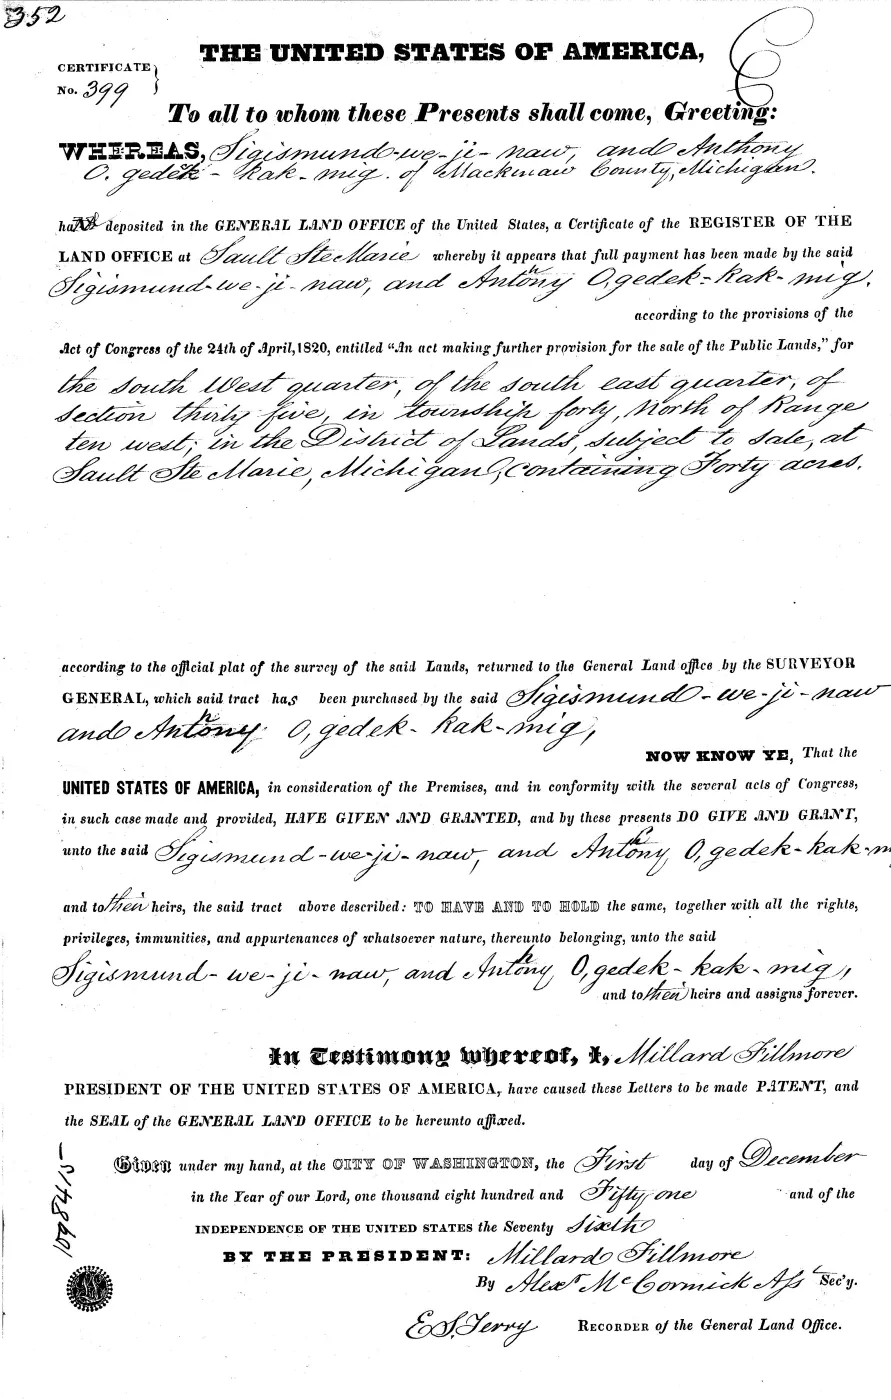 352
THE UNITED STATES OF AMERICA,
CERTIFICATE
No. 399
To all to whom these Presents shall come, Greeting:
WHEREAS, Sigismund-we-ji-naw, and Anthony
O. gedek-kak-mig. of Mackinaw County, Michigan.
deposited in the GENERAL LAND OFFICE of the United States, a Certificate of the REGISTER OF THE
LAND OFFICE at Sault Ste Marie whereby it appears that full payment has been made by the said
Sigismund-we-ji-naw, and Anthony O, gedek-kak-mig.
according to the provisions of the
Act of Congress of the 24th of April, 1820, entitled "An act making further provision for the sale of the Public Lands," for
the south West quarter, of the south east quarter, of
section thirty five, in township forty, North of Range
ten west; in the District of Lands, subject to sale, at
Sault Ste Marie, Michigan, containing Forty acres.
according to the official plat of the survey of the said Lands, returned to the General Land office by the SURVEYOR
GENERAL, which said tract has been purchased by the said Sigismund-we-ji-naw
and Anthony O, gedek-kak-mig,
NOW KNOW YE, That the
UNITED STATES OF AMERICA, in consideration of the Premises, and in conformity with the several acts of Congress,
in such case made and provided, HAVE GIVEN AND GRANTED, and by these presents DO GIVE AND GRANT,
unto the said Sigismund-we-ji-naw, and Anthony O, gedek-kak-m
and to their heirs, the said tract above described: TO HAVE AND TO HOLD the same, together with all the rights,
privileges, immunities, and appurtenances of whatsoever nature, thereunto belonging, unto the said
Sigismund-we-ji-naw, and Anthony O, gedek-kak-mig,
and to their heirs and assigns forever.
In Testimony whereof, I, Millard Fillmore
PRESIDENT OF THE UNITED STATES OF AMERICA, have caused these Letters to be made PATENT, and
the SEAL of the GENERAL LAND OFFICE to be hereunto affixed.
Given under my hand, at the CITY OF WASHINGTON, the First day of December
in the Year of our Lord, one thousand eight hundred and Fifty one and of the
INDEPENDENCE OF THE UNITED STATES the Seventy sixth
BY THE PRESIDENT: Millard Fillmore
By Alexr McCormick Asst Sec'y.
E S Terry RECORDER of the General Land Office.